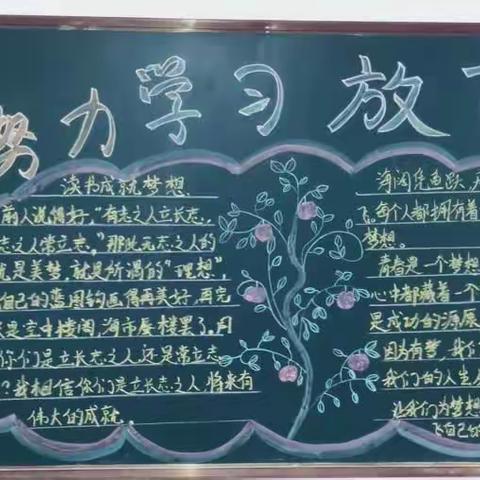 努力学习放飞
读书成就梦想
前人说得好,"有志之人立长志,
志之人常立志,"那些无志之人的
就是美梦,就是所谓的"理想",
自己的蓝图约画得再美好,再完
是空中楼阁,海市蜃楼罢了,同
你们是立长志之人,还是常立志
?我相信你们是立长志之人,将来有
伟大的成就。
海阔凭鱼跃,
飞。每个人都拥有着
梦想。
青春是一个梦想
心中都藏着一个
是成功的源泉
因为有梦,我们
我们的人生
让我们为梦想
飞自己的